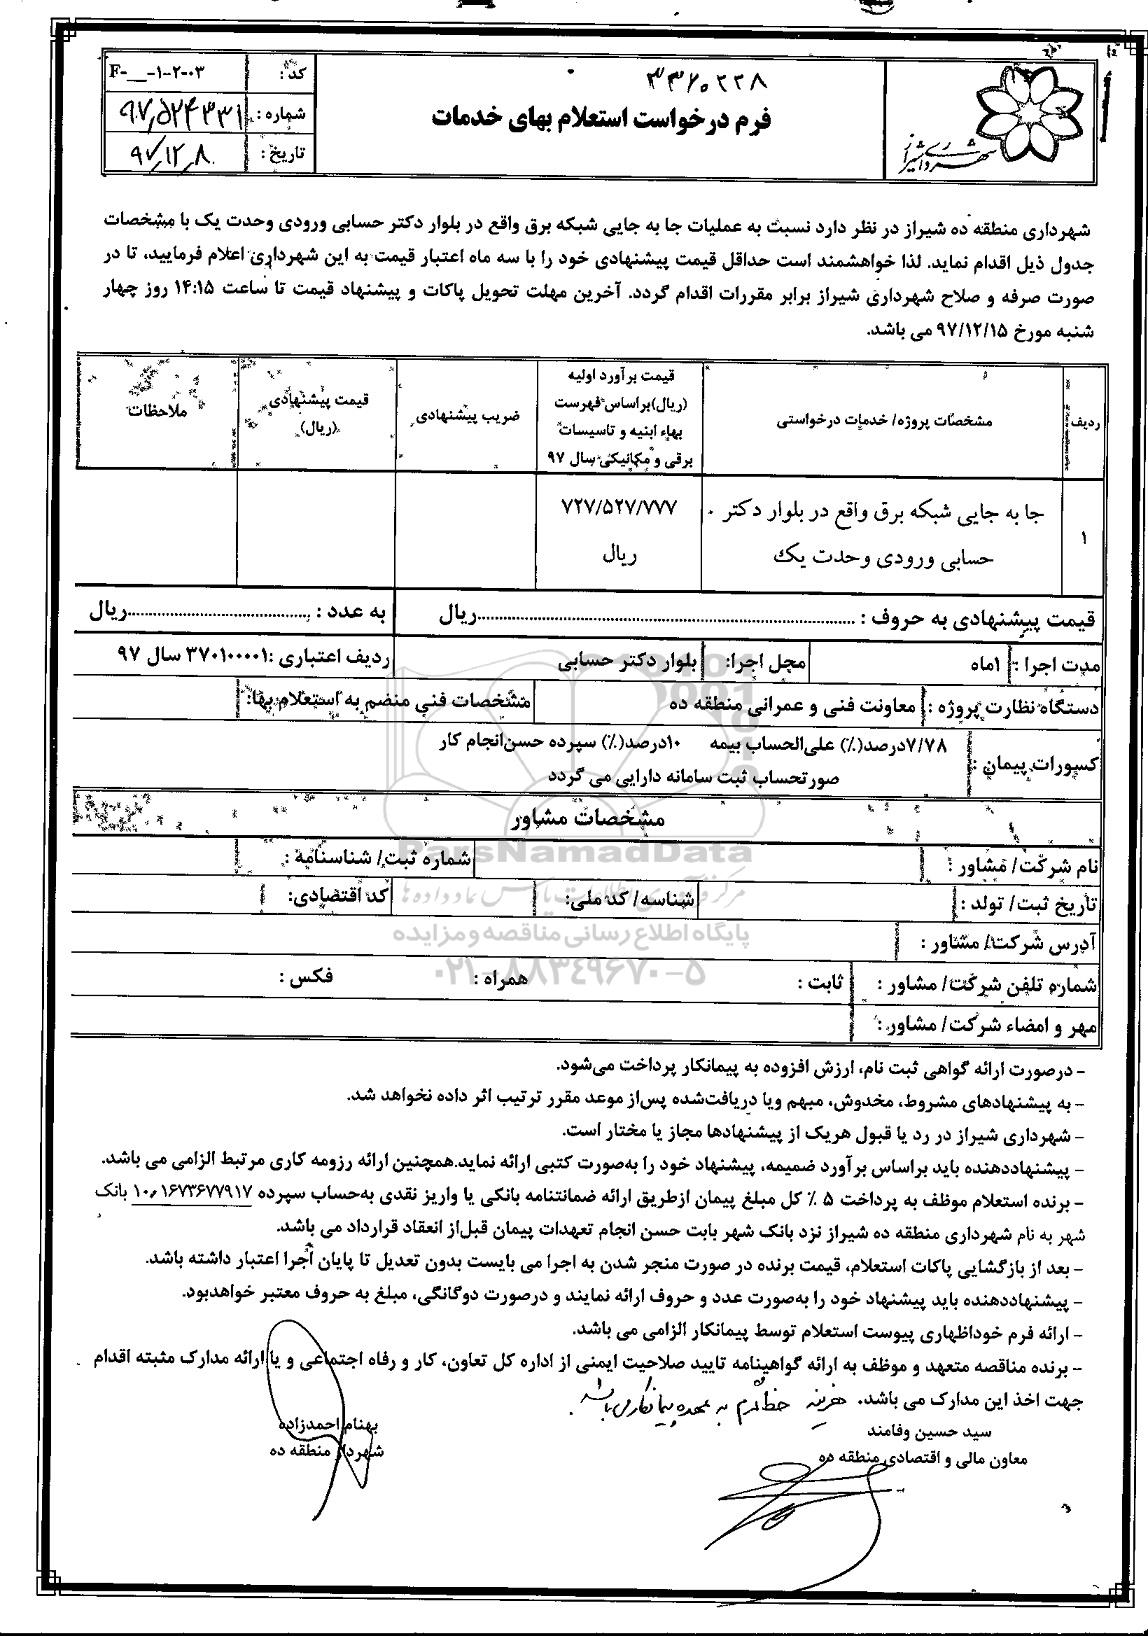 ۳۳۶۰۲۲۸
فرم درخواست استعلام بهای خدمات
شهرداری شیراز
کد : F-__-۱-۲-۰۳
شماره : ۹۷,۵۲۴۳۳۱
تاریخ : ۹۷,۱۲,۸
شهرداری منطقه ده شیراز در نظر دارد نسبت به عملیات جا به جایی شبکه برق واقع در بلوار دکتر حسابی ورودی وحدت یک با مشخصات
جدول ذیل اقدام نماید. لذا خواهشمند است حداقل قیمت پیشنهادی خود را با سه ماه اعتبار قیمت به این شهرداری اعلام فرمایید، تا در
صورت صرفه و صلاح شهرداری شیراز برابر مقررات اقدام گردد. آخرین مهلت تحویل پاکات و پیشنهاد قیمت تا ساعت ۱۴:۱۵ روز چهار
شنبه مورخ ۹۷/۱۲/۱۵ می باشد.
ردیف
مشخصات پروژه/ خدمات درخواستی
قیمت برآورد اولیه
(ریال)براساس فهرست
بهاء ابنیه و تاسیسات
برقی و مکانیکی سال ۹۷
ضریب پیشنهادی
قیمت پیشنهادی
(ریال)
ملاحظات
۱
جا به جایی شبکه برق واقع در بلوار دکتر
حسابی ورودی وحدت یک
۷۲۷/۵۲۷/۷۷۷
ریال
قیمت پیشنهادی به حروف : ......................ریال به عدد : ......................ریال
مدت اجرا : ۱ماه محل اجرا: بلوار دکتر حسابی ردیف اعتباری :۳۷۰۱۰۰۰۰۱ سال ۹۷
دستگاه نظارت پروژه : معاونت فنی و عمرانی منطقه ده مشخصات فنی منضم به استعلام بها:
کسورات پیمان : ۷/۷۸درصد(٪) علی‌الحساب بیمه ۱۰درصد(٪) سپرده حسن‌انجام کار
صورتحساب ثبت سامانه دارایی می گردد
مشخصات مشاور
نام شرکت/ مشاور : شماره ثبت/ شناسنامه :
تاریخ ثبت/ تولد : شناسه/ کد ملی: کد اقتصادی:
آدرس شرکت/ مشاور :
شماره تلفن شرکت/ مشاور : ثابت : همراه : فکس :
مهر و امضاء شرکت/ مشاور :
ParsNamadData
پایگاه اطلاع رسانی مناقصه و مزایده
۰۲۱-۸۸۳۴۹۶۷۰-۵
- درصورت ارائه گواهی ثبت نام، ارزش افزوده به پیمانکار پرداخت می‌شود.
- به پیشنهادهای مشروط، مخدوش، مبهم ویا دریافت‌شده پس‌از موعد مقرر ترتیب اثر داده نخواهد شد.
- شهرداری شیراز در رد یا قبول هریک از پیشنهادها مجاز یا مختار است.
- پیشنهاددهنده باید براساس برآورد ضمیمه، پیشنهاد خود را به‌صورت کتبی ارائه نماید.همچنین ارائه رزومه کاری مرتبط الزامی می باشد.
- برنده استعلام موظف به پرداخت ۵ ٪ کل مبلغ پیمان ازطریق ارائه ضمانتنامه بانکی یا واریز نقدی به‌حساب سپرده ۱۰۰۱۶۷۳۶۷۷۹۱۷ بانک
شهر به نام شهرداری منطقه ده شیراز نزد بانک شهر بابت حسن انجام تعهدات پیمان قبل‌از انعقاد قرارداد می باشد.
- بعد از بازگشایی پاکات استعلام، قیمت برنده در صورت منجر شدن به اجرا می بایست بدون تعدیل تا پایان اجرا اعتبار داشته باشد.
- پیشنهاددهنده باید پیشنهاد خود را به‌صورت عدد و حروف ارائه نمایند و درصورت دوگانگی، مبلغ به حروف معتبر خواهدبود.
- ارائه فرم خوداظهاری پیوست استعلام توسط پیمانکار الزامی می باشد.
- برنده مناقصه متعهد و موظف به ارائه گواهینامه تایید صلاحیت ایمنی از اداره کل تعاون، کار و رفاه اجتماعی و یا ارائه مدارک مثبته اقدام
جهت اخذ این مدارک می باشد. هزینه به عهده پیمانکار می باشد.
سید حسین وفامند
معاون مالی و اقتصادی منطقه ده
بهنام احمدزاده
شهردار منطقه ده